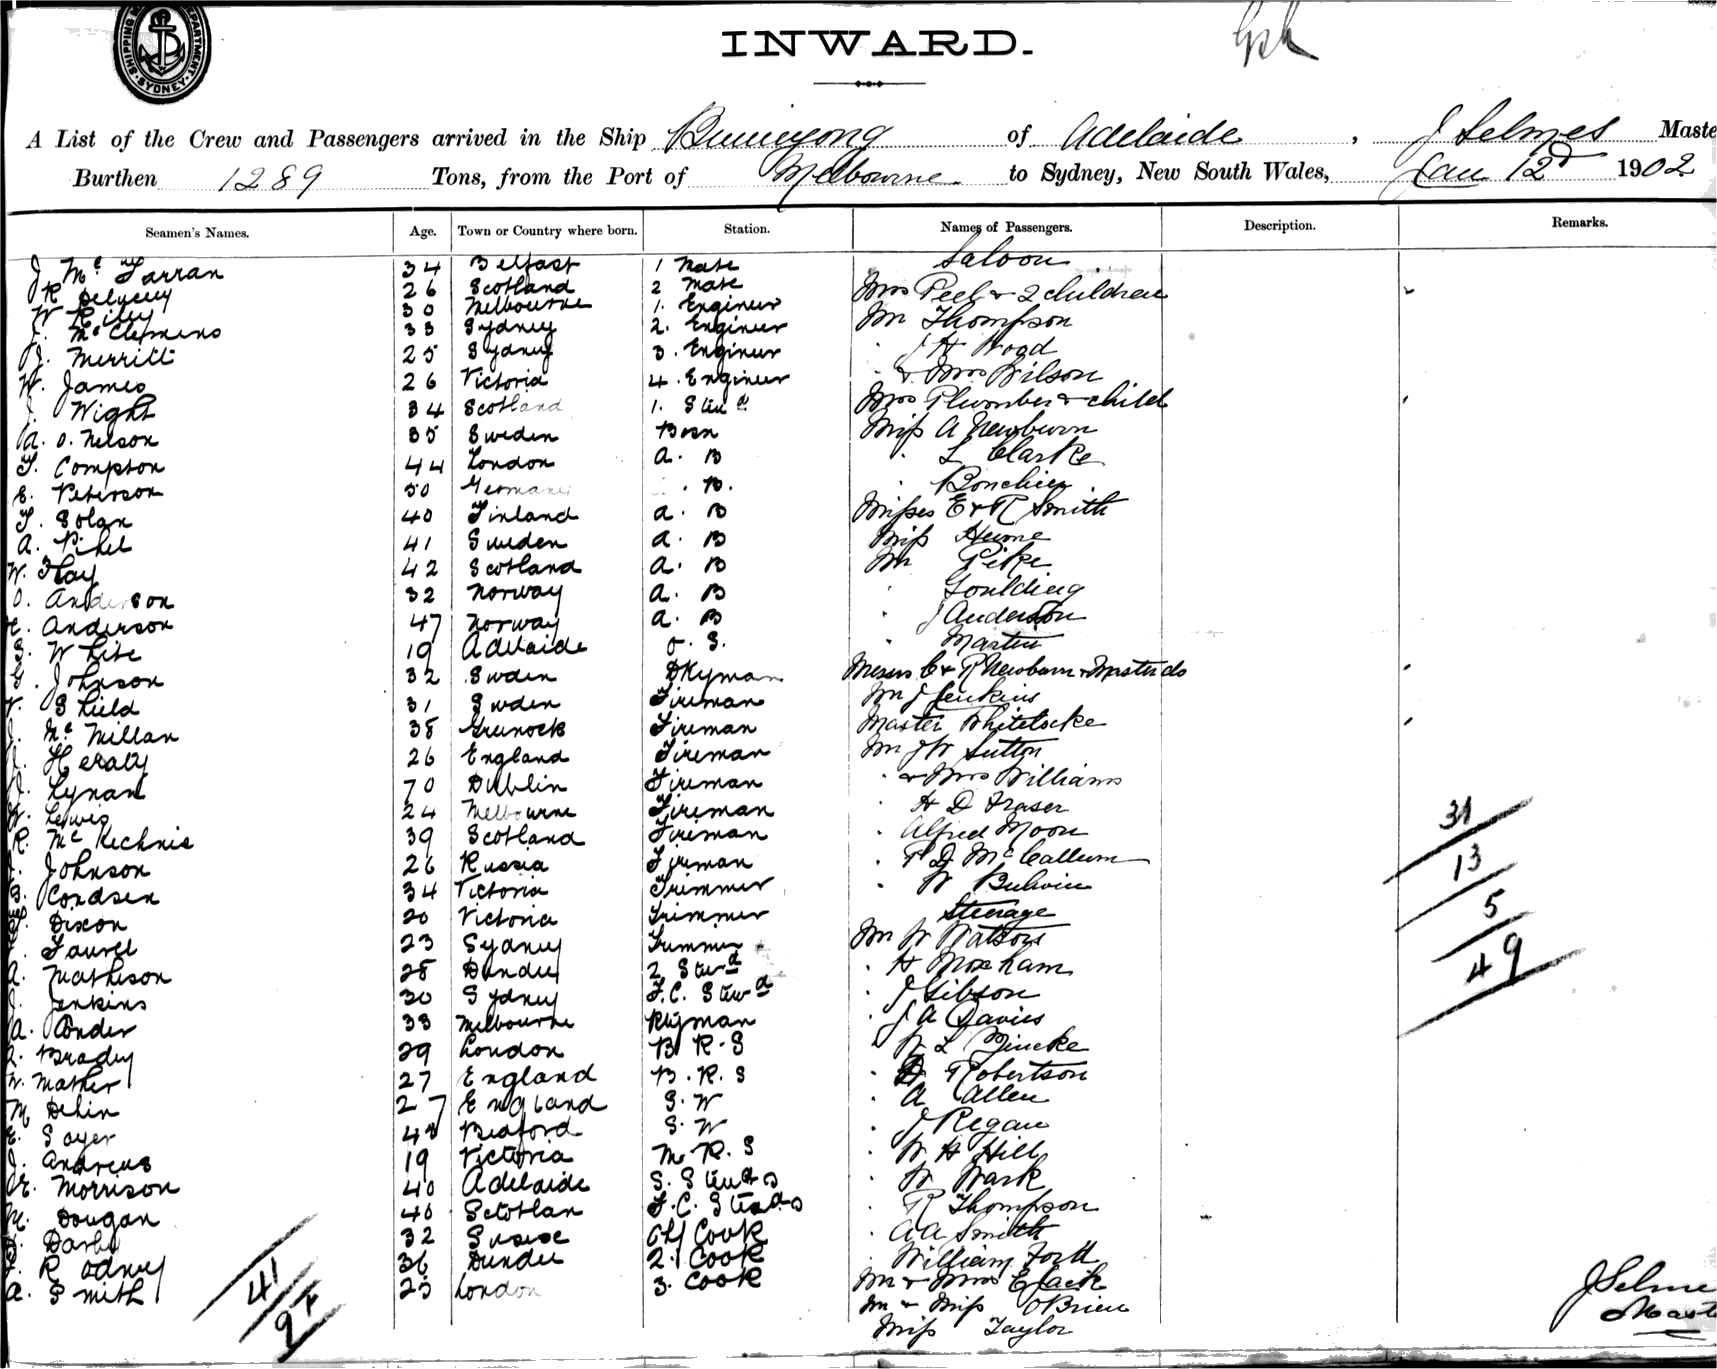 SHIPPING MASTER'S DEPARTMENT · SYDNEY ·
INWARD.
A List of the Crew and Passengers arrived in the Ship Buninyong of Adelaide, J Selmes Maste
Burthen 1289 Tons, from the Port of Melbourne to Sydney, New South Wales, Jan 12d 1902
Seamen's Names. Age. Town or Country where born. Station. Names of Passengers. Description. Remarks.
Saloon
J Mc Farran 34 Belfast 1 Mate
R 26 Scotland 2 Mate Mrs Peel & 2 children
W Riley 30 Melbourne 1. Engineer Mr Thompson
J. Mc Clemens 33 Sydney 2. Engineer J H Wood
J. Merritt 25 Sydney 3. Engineer & Mrs Wilson
W. James 26 Victoria 4. Engineer Mrs Plumber & child
J. Wight 34 Scotland 1. Stewd Miss A Newburn
A. O. Nelson 35 Sweden Bosn L Clarke
T. Compton 44 London A. B
E. Peterson 50 Germany . B. Misses E & R Smith
T. Solan 40 Finland A. B Miss Hume
A. Pihel 41 Sweden A. B Mr Pike
W. Hay 42 Scotland A. B Goulding
O. Anderson 32 Norway A. B J Anderson
E. Anderson 47 Norway A. B Martin
White 19 Adelaide O. S. Messrs C & R Newburn & Master do
Johnson 32 Sweden DKyman Mr J Jenkins
Shield 31 Sweden Fireman Master Whitelocke
J. Mc Millan 38 Grenock Fireman Mr J W Sutton
J. Heraty 26 England Fireman & Mrs Williams
J. Lynan 70 Dublin Fireman H D Fraser
W. Lewis 24 Melbourne Fireman Alfred Moon
R. Mc Kechnie 39 Scotland Fireman P D McCallum
Johnson 26 Russia Fireman W Bulwin
Condsen 34 Victoria Trimmer Steerage
Dixon 20 Victoria Trimmer Mr W Watson
Laurel 23 Sydney Trimmer H Moxham
A. Matheson 28 Dundee 2 Stewd J Gibson
J. Jenkins 30 Sydney F.C. Stewd J A Davies
A. Ponder 33 Melbourne Pntyman W L Zincke
Bradey 29 London B R. S D Robertson
W. Mather 27 England B. R. S A Allen
M Delin 27 England S. W J Regan
E. Sayer 48 Bedford S. W W H Hill
J. Andrews 19 Victoria M. R. S W Wark
E. Morrison 40 Adelaide S. Stewds R Thompson
M. Dougan 40 Scotlan F.C. Stewds A A Smith
Darby 32 Sussex Chf Cook William Ford
Rodney 36 Dundee 2. Cook Mr & Mrs E Jack
A. Smith 25 London 3. Cook Mr & Miss OBrien
Miss Taylor
31
13
5
49
41
J Selme
Mast